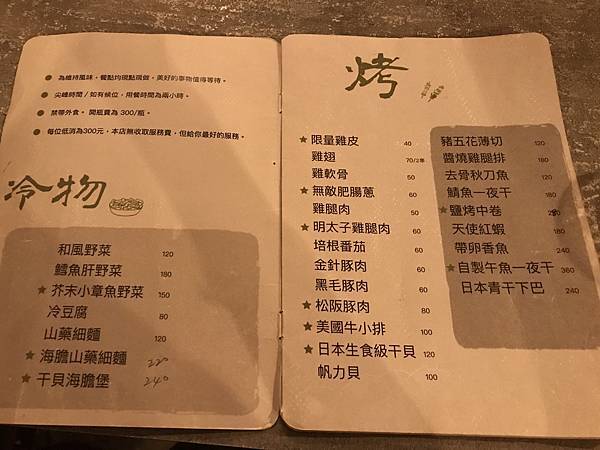 為維持風味,餐點均現點現做,美好的事物值得等待。
尖峰時間/如有候位,用餐時間為兩小時。
禁帶外食。 開瓶費為 300/瓶。
每位低消為300元,本店無收取服務費,但給你最好的服務。
冷物
和風野菜 120
鱈魚肝野菜 180
★芥末小章魚野菜 150
冷豆腐 80
山藥細麵 120
★海膽山藥細麵 220
★干貝海膽堡 240
烤
★限量雞皮 40
雞翅 70/2串
雞軟骨 50
★無敵肥腸蔥 60
雞腿肉 50
★明太子雞腿肉 60
培根番茄 60
金針豚肉 60
黑毛豚肉 60
★松阪豚肉 60
★美國牛小排 100
★日本生食級干貝 120
帆力貝 100
豬五花薄切 120
醬燒雞腿排 180
去骨秋刀魚 120
鯖魚一夜干 180
★鹽烤中卷
天使紅蝦 180
帶卵香魚 240
★自製午魚一夜干 360
日本青干下巴 240